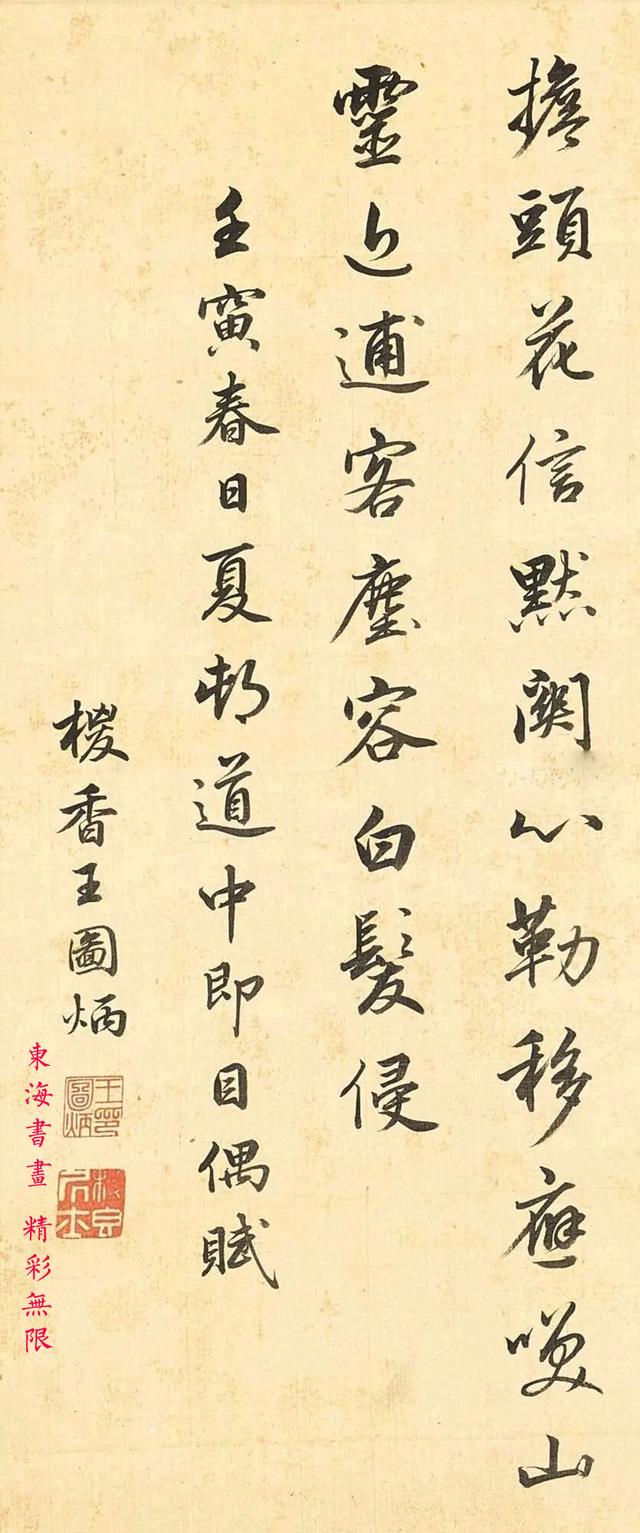 擔頭花信默關心勒移應咲山
靈逋客塵容白髮侵
壬寅春日夏邨道中即目偶賦
椶香王圖炳
王圖炳印
東海書畫 精彩無限